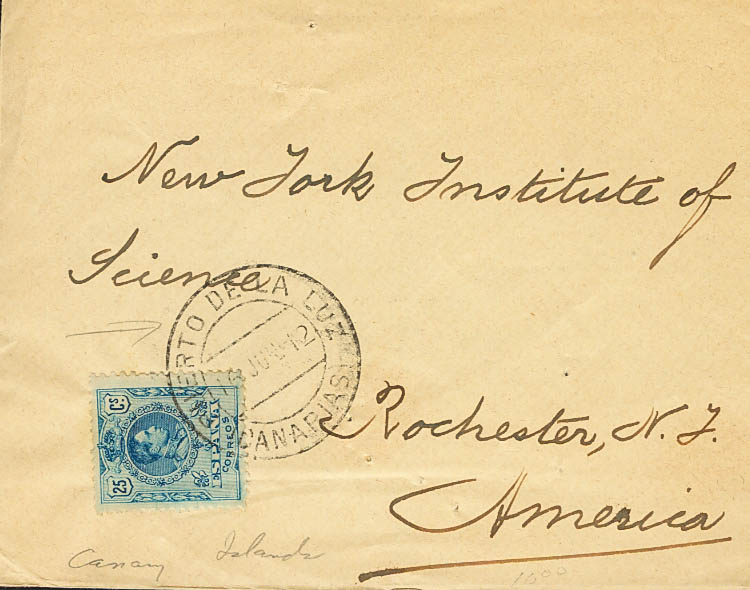 New York Institute of
Science
PUERTO DE LA LUZ
JUN 12
CANARIAS
Rochester, N.Y.
America
25 Cs
ESPAÑA
CORREOS
Canary Islands
10 00